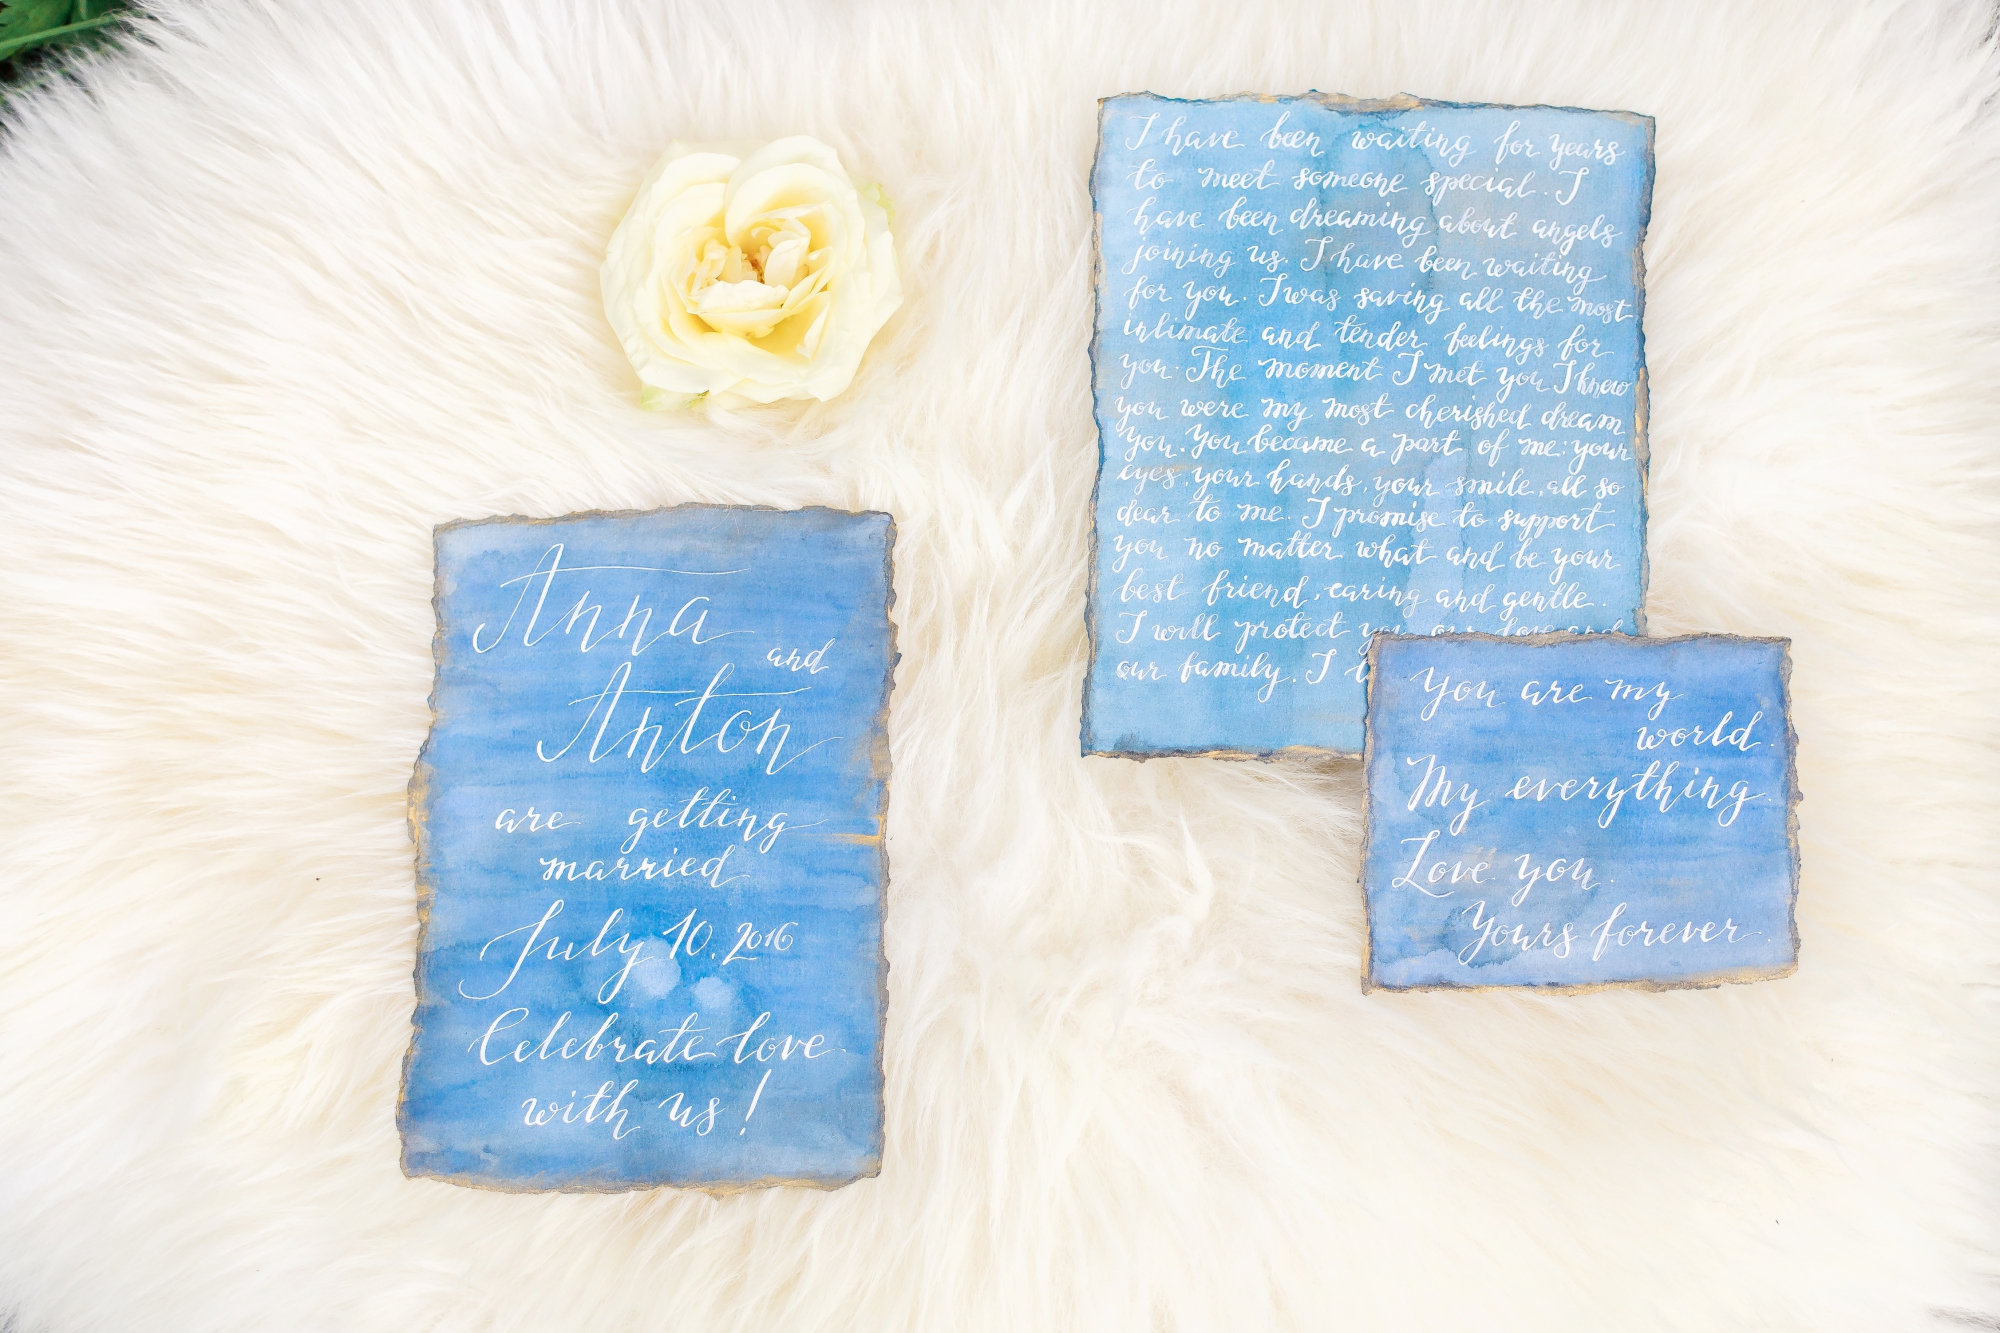 Anna
and
Anton
are getting
married
July 10. 2016
Celebrate love
with us!
I have been waiting for years
to meet someone special. I
have been dreaming about angels
joining us. I have been waiting
for you. I was saving all the most
intimate and tender feelings for
you. The moment I met you I knew
you were my most cherished dream
you. You became a part of me: your
eyes, your hands, your smile, all so
dear to me. I promise to support
you no matter what and be your
best friend, caring and gentle.
I will protect you our love and
our family. I
You are my
world.
My everything.
Love you.
Yours forever.